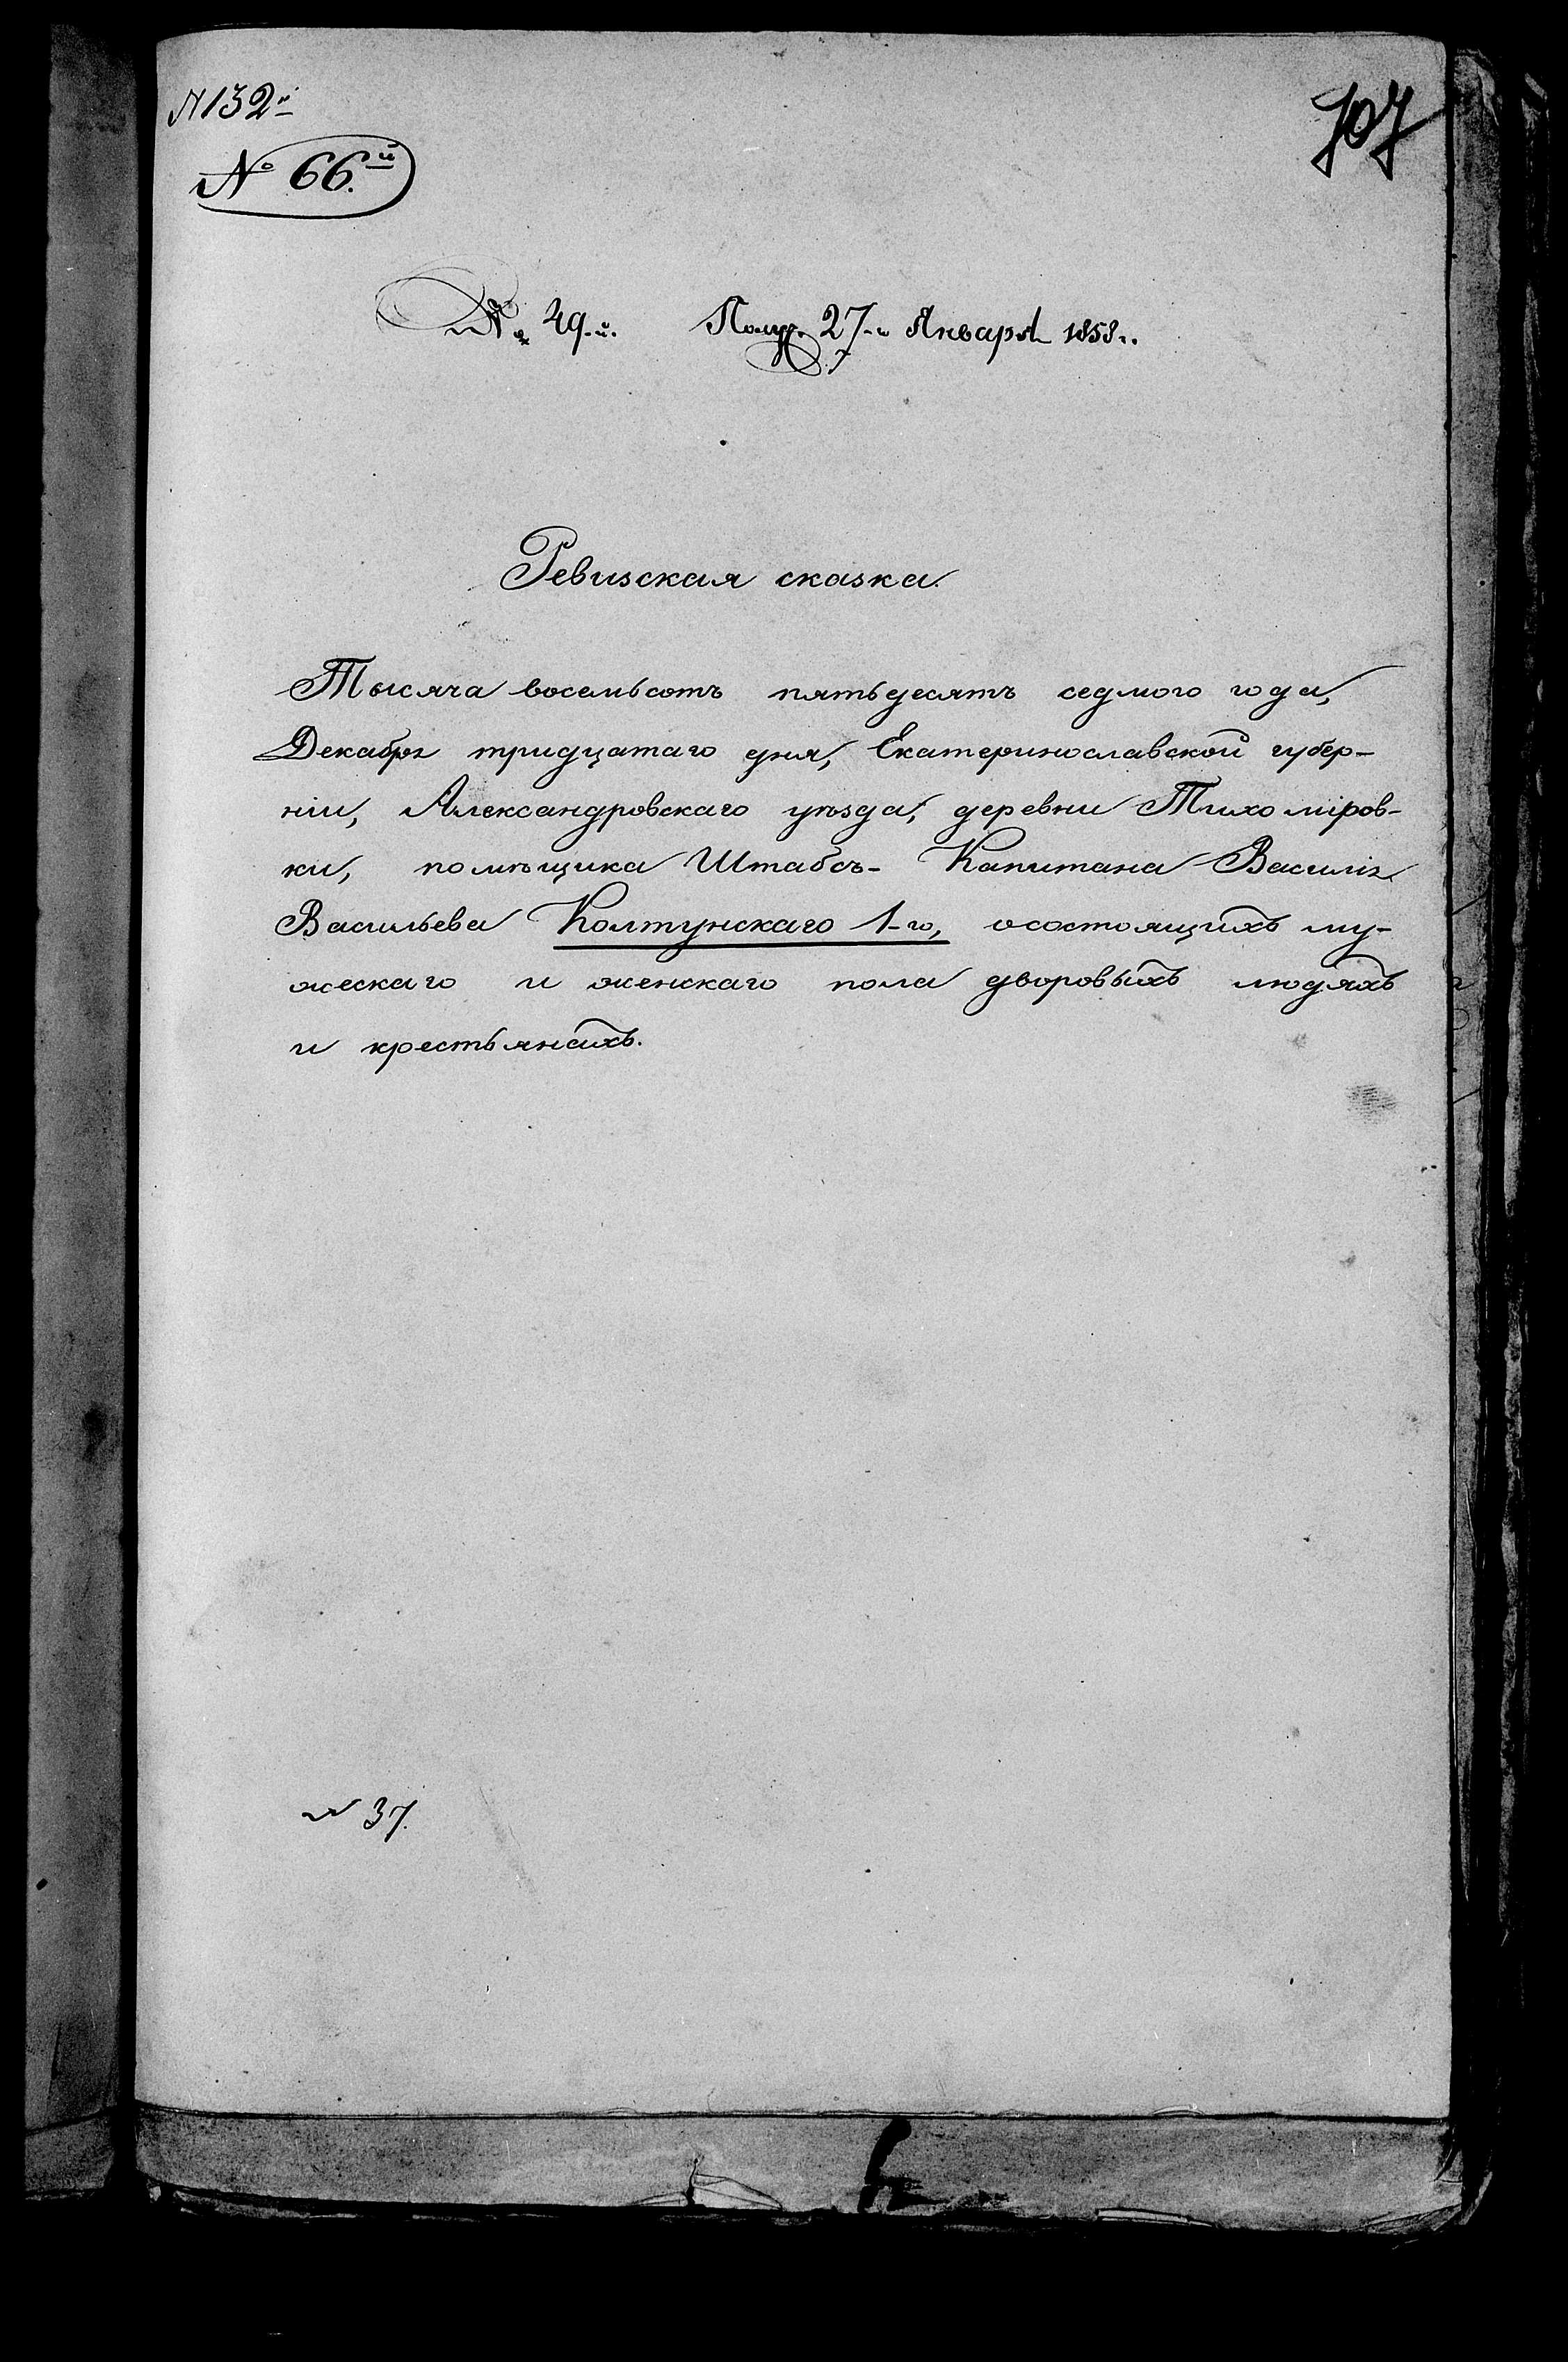 N 132й
707
№ 66.й
№ 49-й. Получ. 27-го Января 1858 г.
Ревизская сказка.
Тысяча восемьсотъ пятьдесятъ седмого года,
Декабря тридцатаго дня, Екатеринославской губер-
ніи, Александровскаго уѣзда, деревни Тихоміров-
ки, помѣщика Штабсъ-Капитана Василія
Васильева Колтунскаго 1-го, осостоящихъ му-
жескаго и женскаго пола дворовыхъ людяхъ
и крестьянахъ.
N 37.